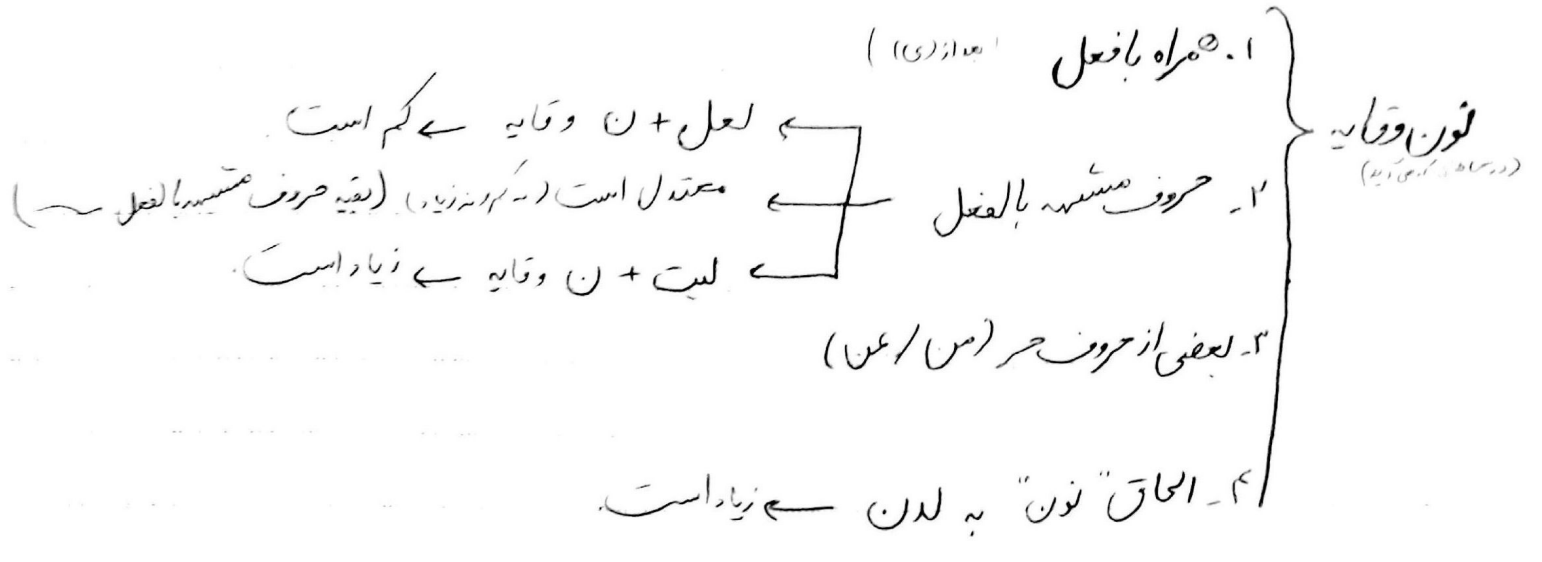 نون وقایه
۱. همراه با فعل (بعد از (ی))
۲- حروف مشبهه بالفعل
لعل + ن وقایه ← کم است.
معتدل است (نه کم و نه زیاد) (بقیه حروف مشبهه بالفعل)
لیت + ن وقایه ← زیاد است.
۳- بعضی از حروف جر (من / عن)
۴- الحاق "نون" به لدن ← زیاد است.